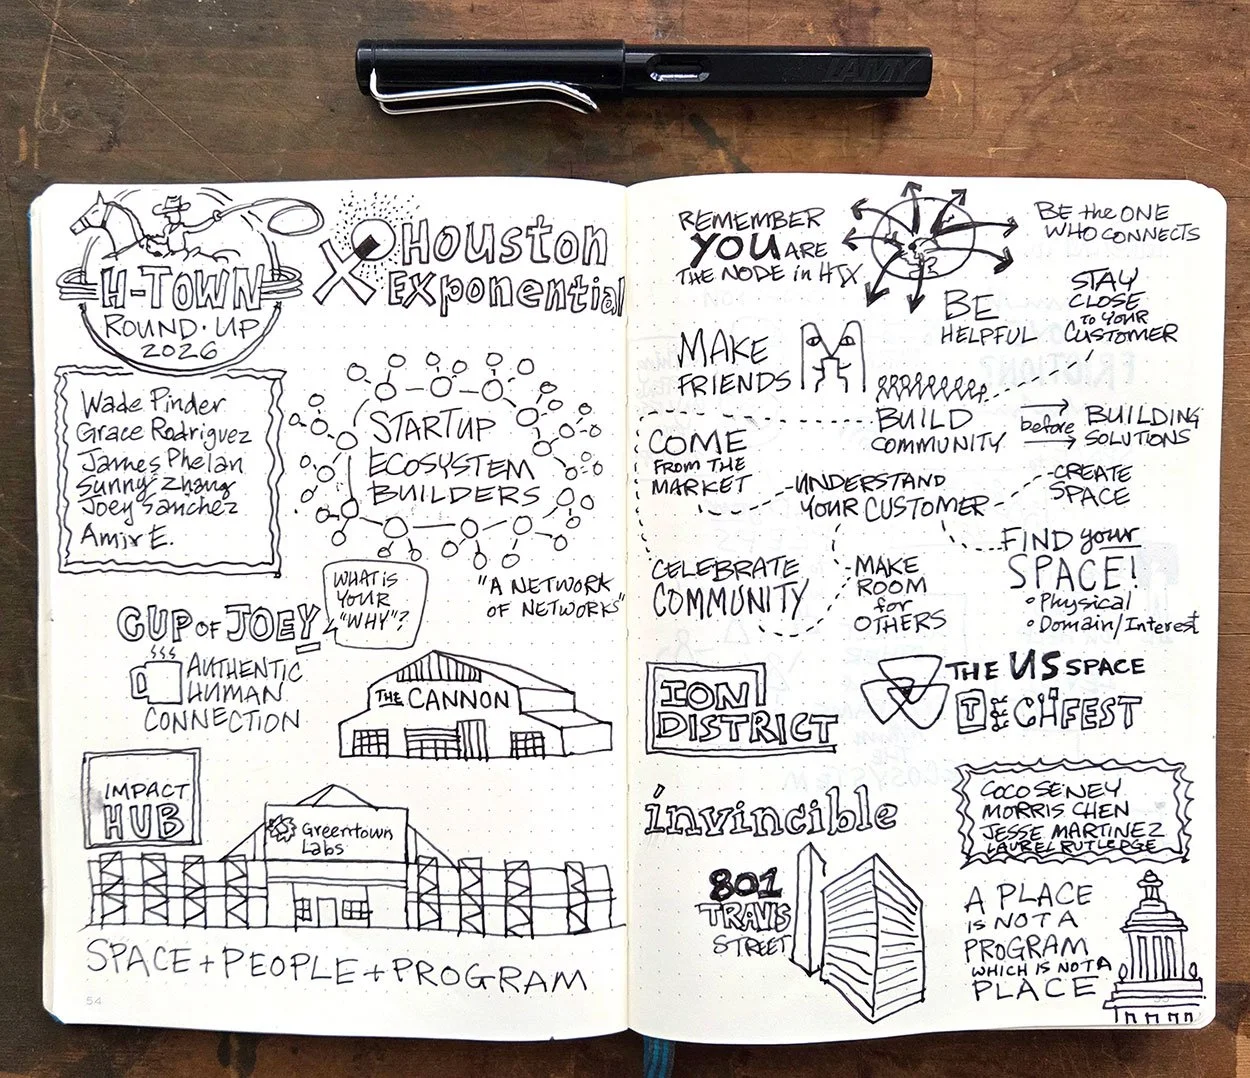 LAMY
H-TOWN
ROUND·UP
2026
Houston
Exponential
Wade Pinder
Grace Rodriguez
James Phelan
Sunny Zhang
Joey Sanchez
Amir E.
STARTUP
ECOSYSTEM
BUILDERS
"A NETWORK
OF NETWORKS"
WHAT IS
YOUR
"WHY"?
CUP OF JOEY
AUTHENTIC
HUMAN
CONNECTION
THE CANNON
IMPACT
HUB
Greentown
Labs
SPACE + PEOPLE + PROGRAM
54
REMEMBER
YOU ARE
THE NODE in HTX
BE the ONE
WHO CONNECTS
BE
HELPFUL
STAY
CLOSE
to YOUR
CUSTOMER
MAKE
FRIENDS
BUILD
COMMUNITY
before
BUILDING
SOLUTIONS
COME
FROM THE
MARKET
UNDERSTAND
YOUR CUSTOMER
CREATE
SPACE
FIND your
SPACE!
• Physical
• Domain/Interest
CELEBRATE
COMMUNITY
MAKE
ROOM
for
OTHERS
ION
DISTRICT
THE US SPACE
TECHFEST
invincible
COCO SENEY
MORRIS CHEN
JESSE MARTINEZ
LAUREL RUTLEDGE
801
TRAVIS
STREET
A PLACE
IS NOT A
PROGRAM
WHICH IS NOT A
PLACE
55